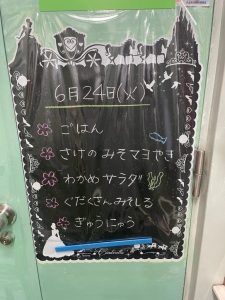 6月24日(火)
ごはん
さけのみそマヨやき
わかめサラダ
ぐだくさんみそしる
ぎゅうにゅう